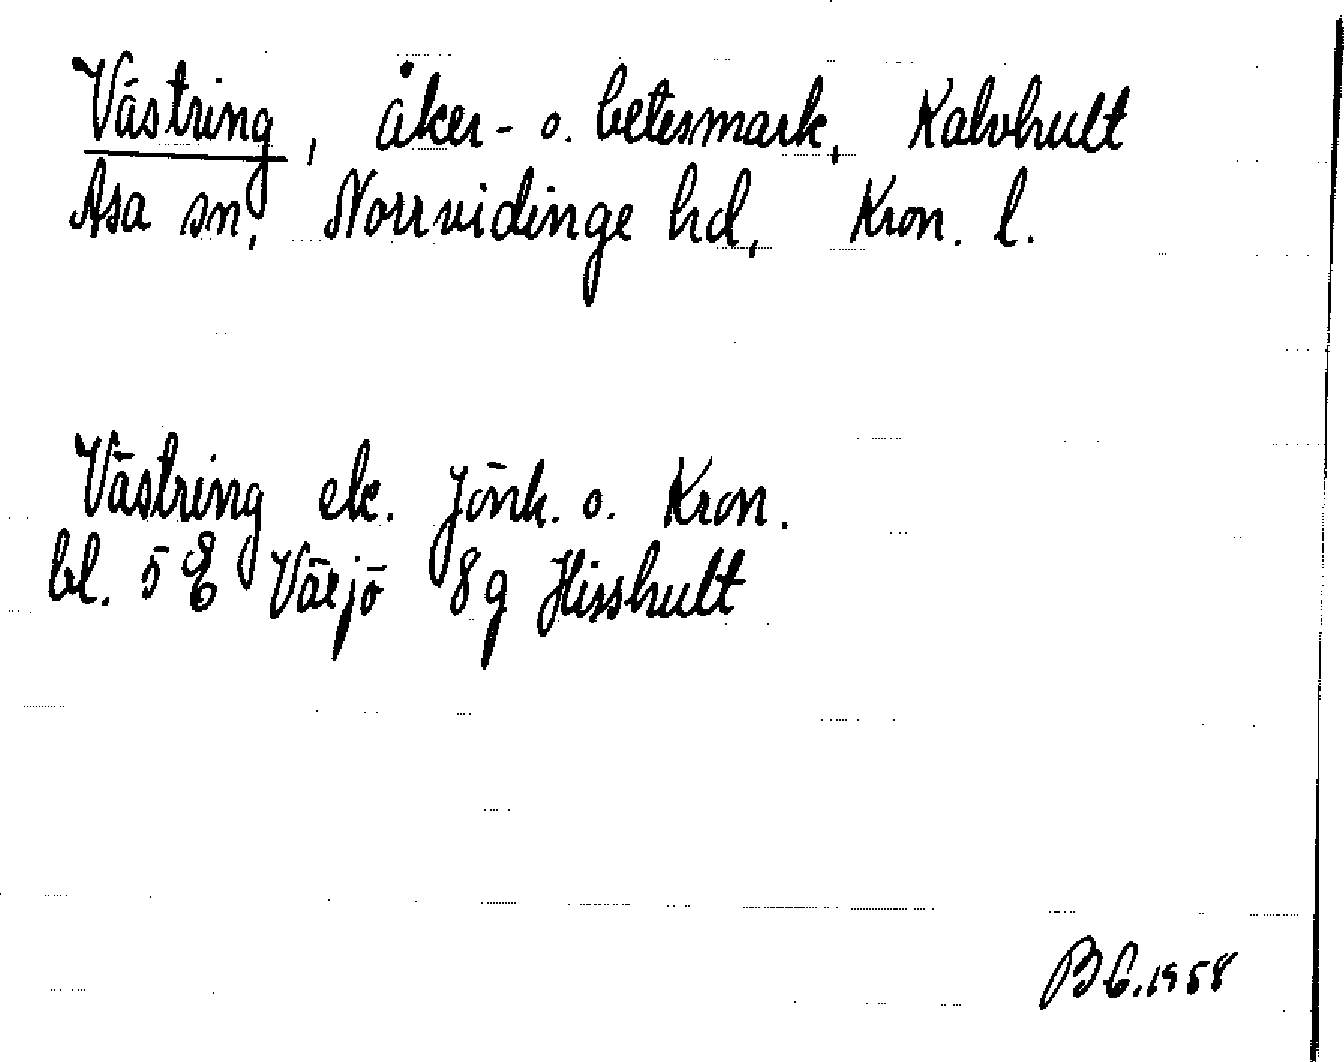 Västring, åker- o. betesmark, Kalvhult
Asa sn, Norrvidinge hd, Kron. l.
Västring ek. Jönk. o. Kron.
bl. 5 E Växjö 8g Hisshult
B G. 1958